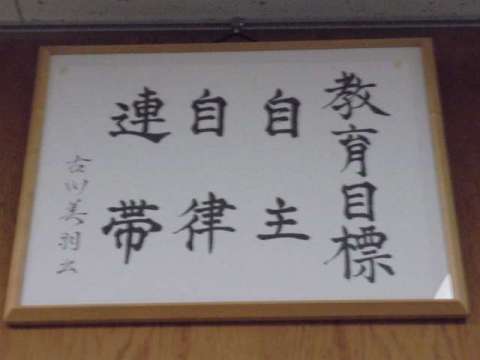 教育目標
自主
自律
連帯
古川美羽